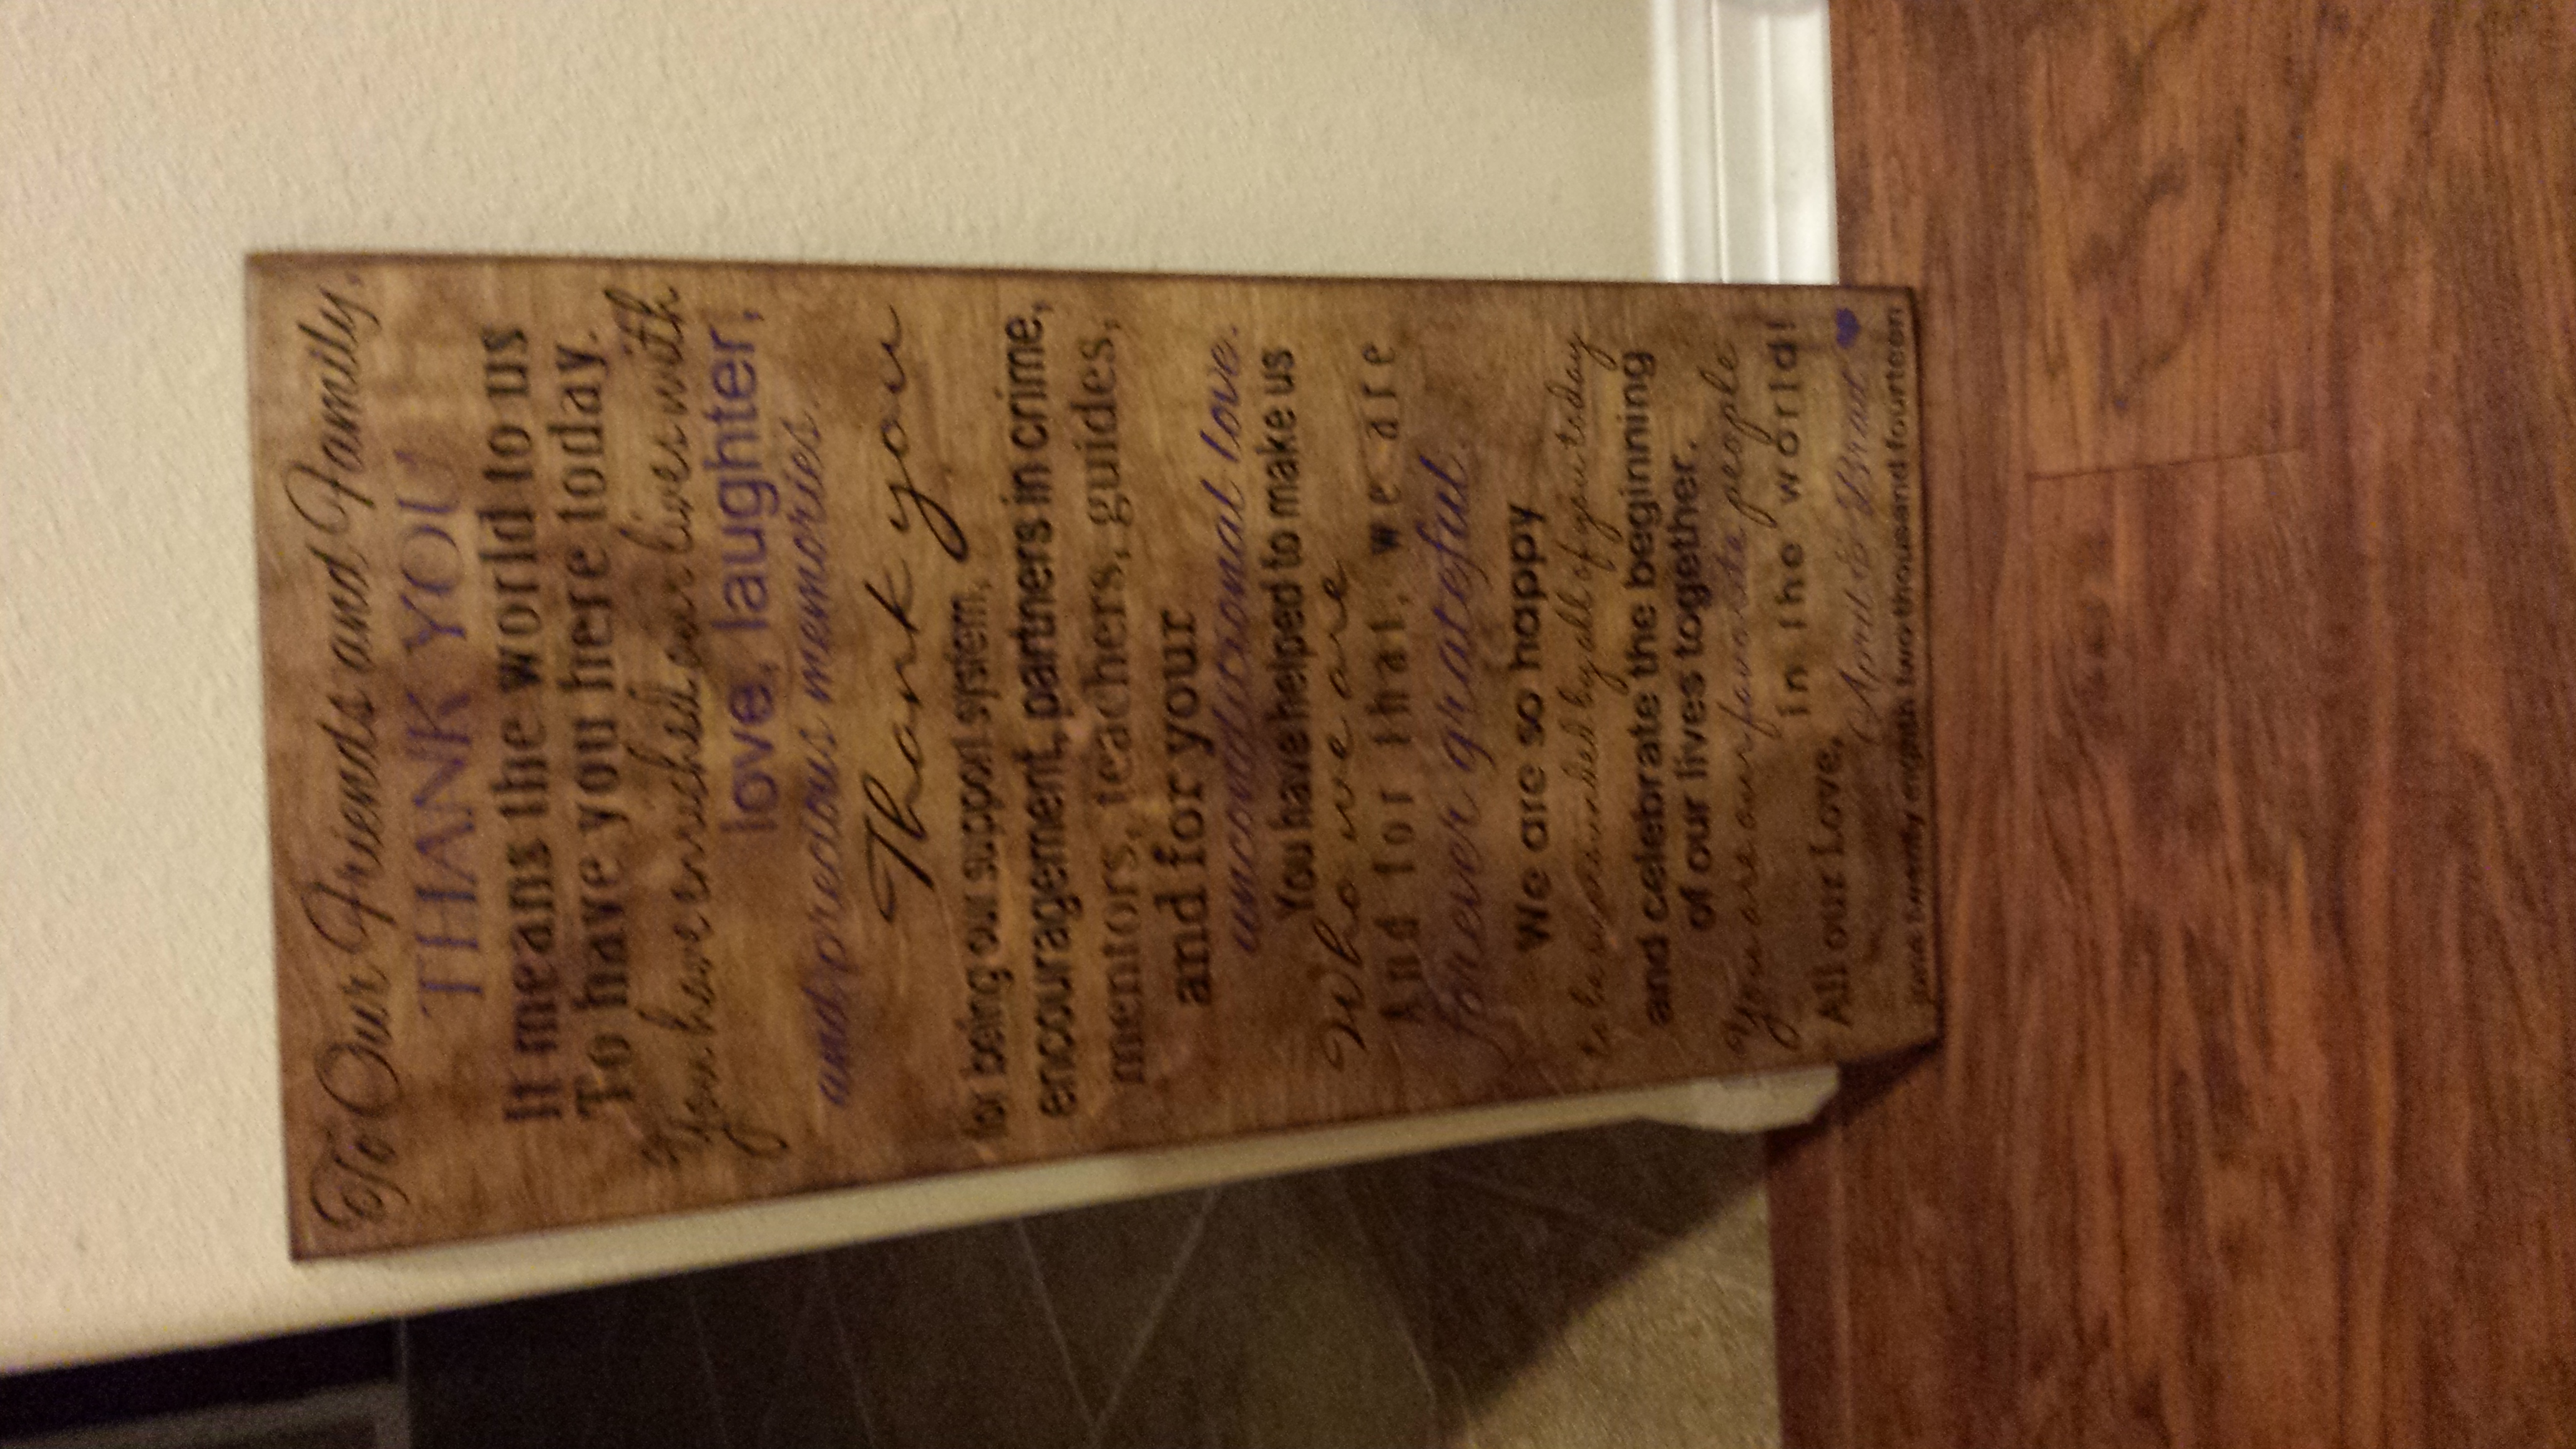 To Our Friends and Family,
THANK YOU
It means the world to us
To have you here today.
You have enriched our lives with
love, laughter,
and precious memories.
Thank you
for being our support system,
encouragement, partners in crime,
mentors, teachers, guides,
and for your
unconditional love.
You have helped to make us
Who we are
And for that, we are
forever grateful.
We are so happy
to be surrounded by all of you today
and celebrate the beginning
of our lives together.
You are our favorite people
in the world!
All our Love,
April & Brad
june twenty eighth two thousand fourteen